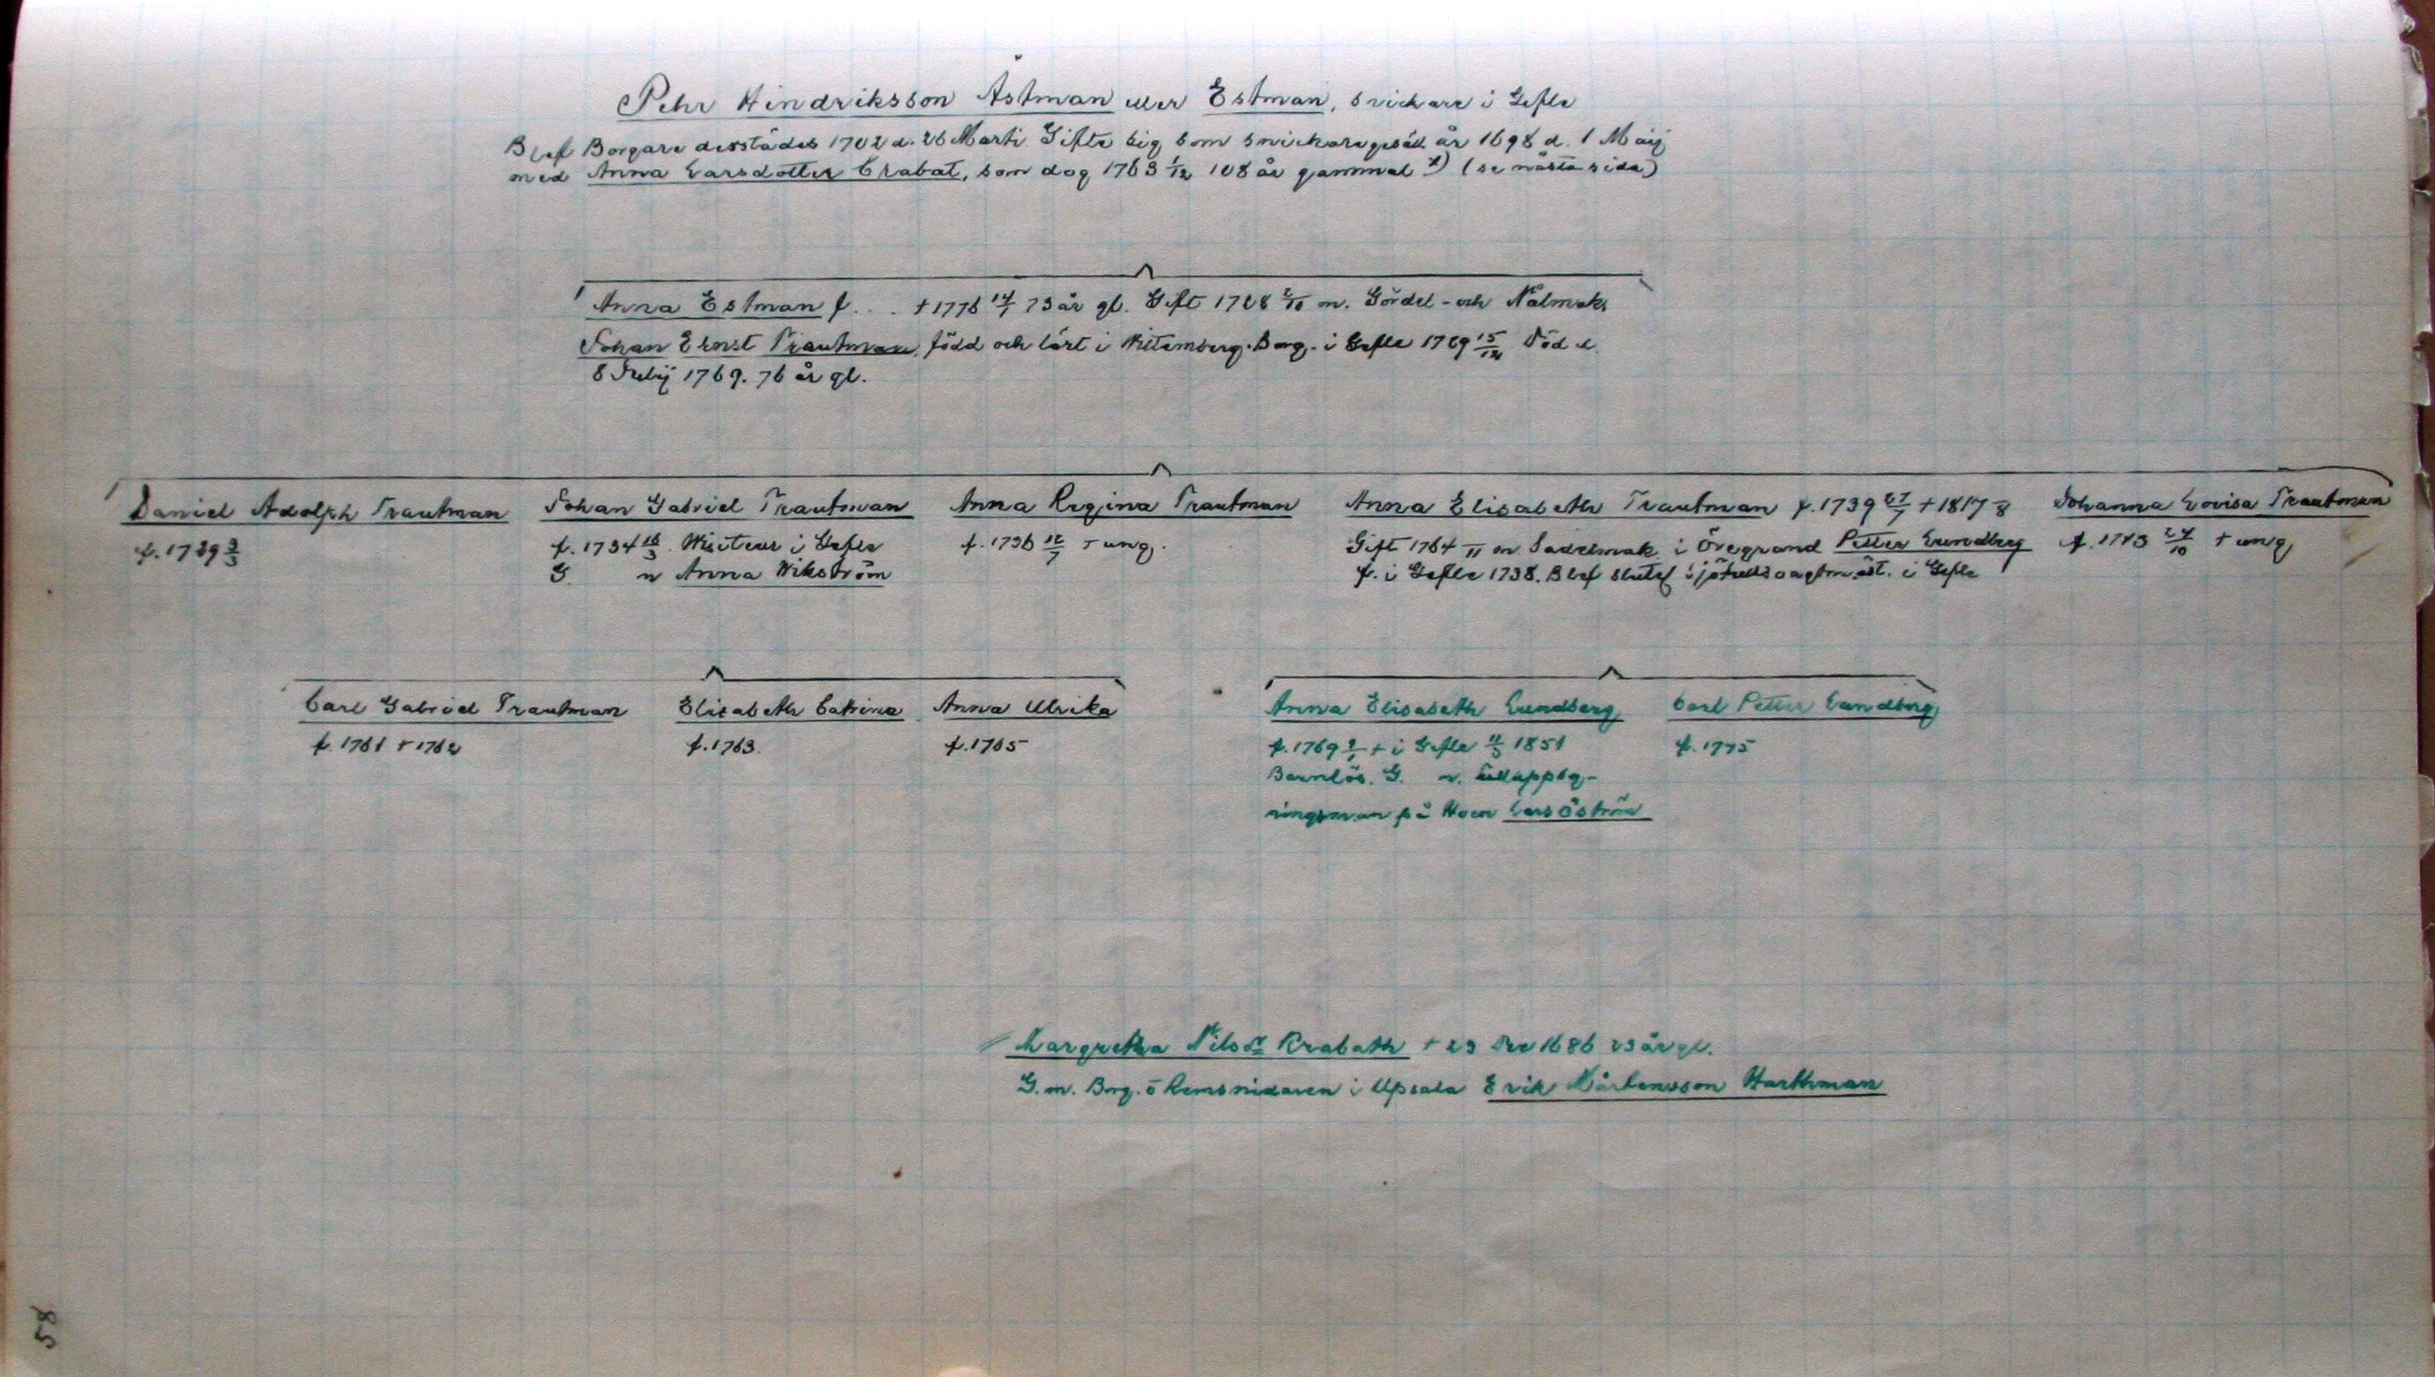 Pehr Hindriksson Åstman eller Estman, snickare i Gefle
Blef Borgare desstädes 1702 d. 26 Marti Gifte sig som snickaregesäll år 1698 d. 1 Maij
med Anna Larsdotter Crabat, som dog 1763 1/12 108 år gammal x) (se nästa sida)
Anna Estman f. . . +1776 14/1 73 år gl. Gift 1728 2/10 m. Gördel- och Nålmak.
Johan Ernst Trautman, född och lärt i Witemberg. Borg. i Gefle 1729 15/12 Död d.
8 Julij 1769. 76 år gl.
Daniel Adolph Trautman
f. 1729 3/3
Johan Gabriel Trautman
f. 1734 16/3. Wisiteur i Gefle
G. m Anna Wikström
Anna Regina Trautman
f. 1736 12/7 + ung.
Anna Elisabeth Trautman f. 1739 27/7 + 1817 8
Gift 1764 /11 m. Sadelmak. i Öregrund Petter Lundberg
f. i Gefle 1738. Blef slutl. sjötullsvagtmäst. i Gefle
Johanna Lovisa Trautman
f. 1743 24/10 + ung
Carl Gabriel Trautman
f. 1761 + 1762
Elisabeth Catrina
f. 1763.
Anna Ulrika
f. 1765
Anna Elisabeth Lundberg
f. 1769 9/1 + i Gefle 11/5 1851
Barnlös. G. m. tulluppsy-
ningsman på Holmen Lars Öström
Carl Petter Lundberg
f. 1775
Margretha Nilsdr Krabath + 29 Dec 1686 23 år gl.
G. m. Borg. o Remsnidaren i Upsala Erik Mårtensson Harthman
58